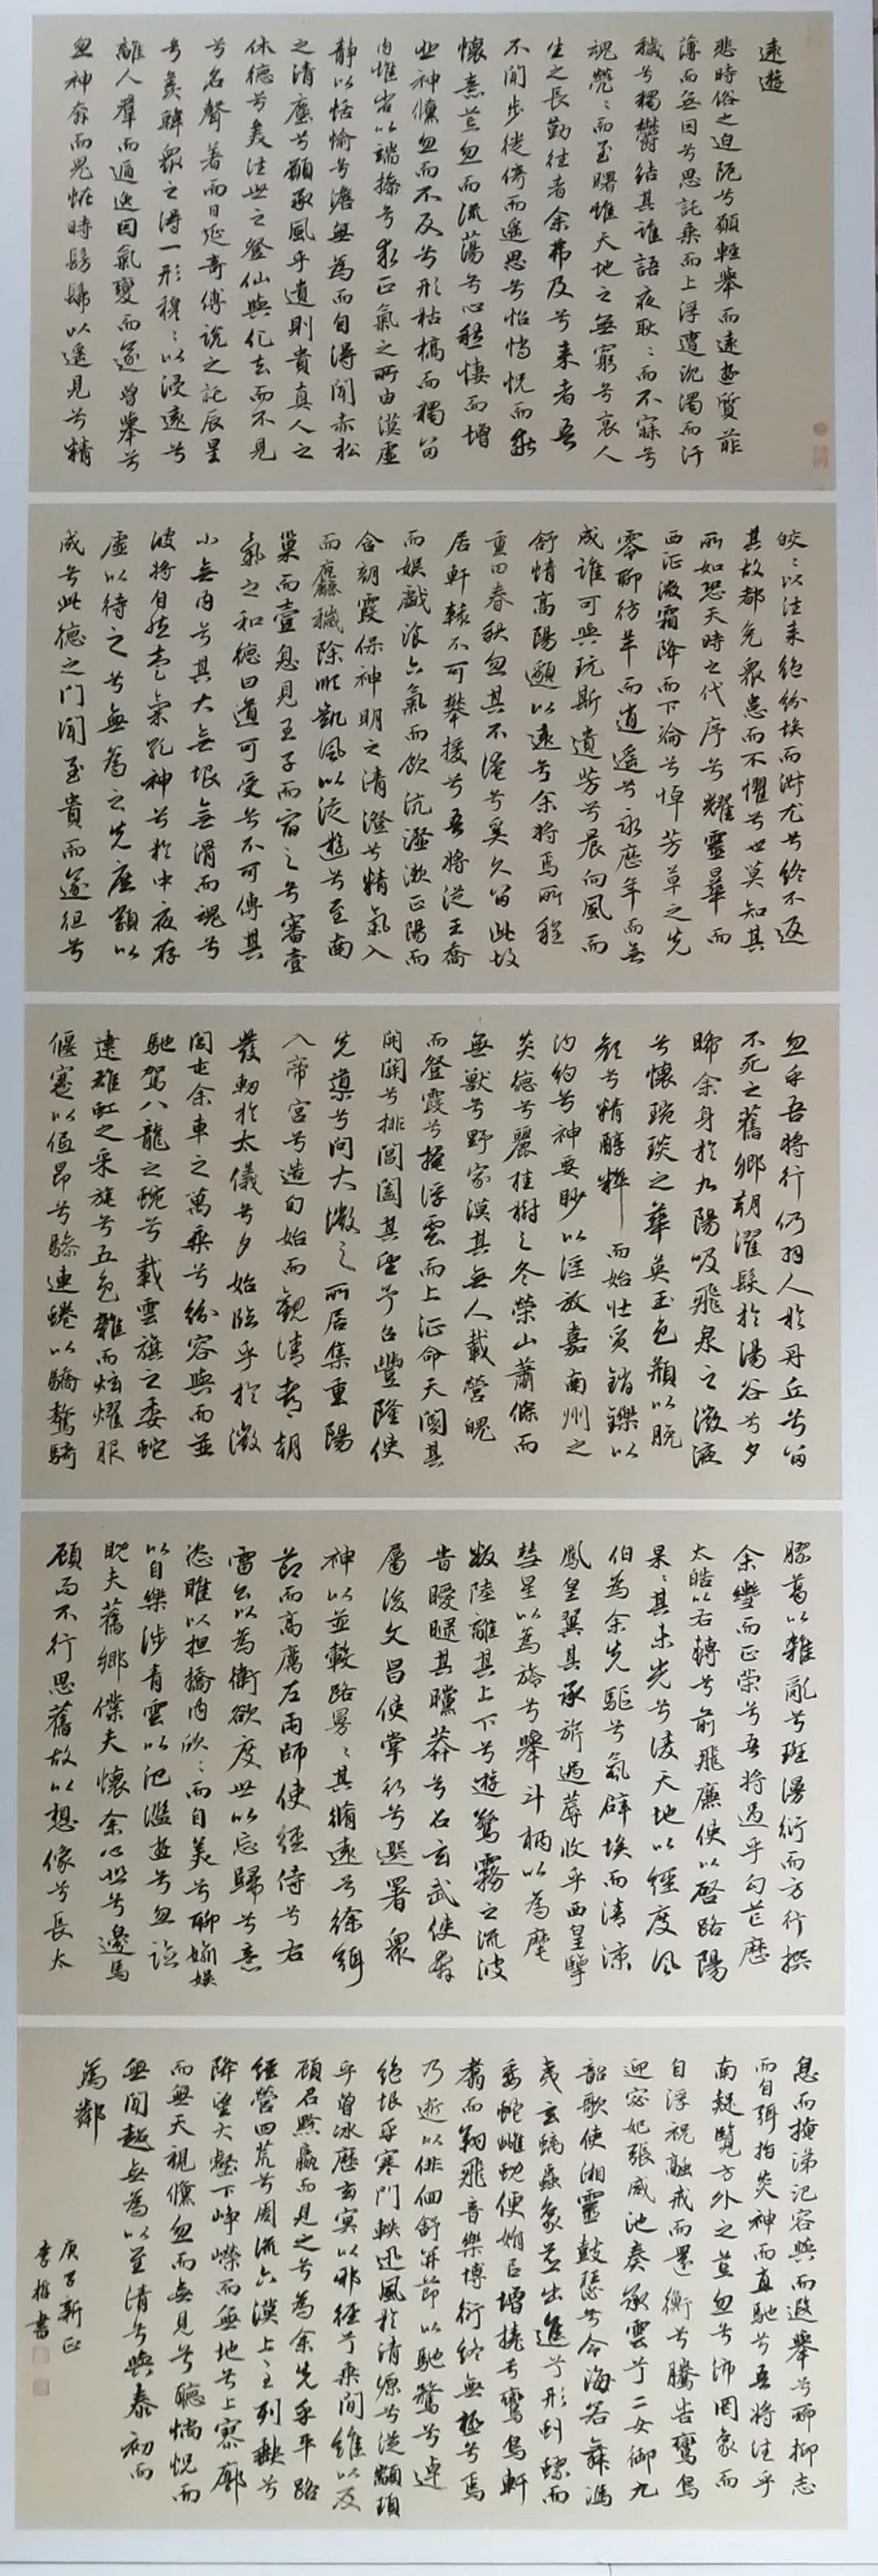 遠遊
悲時俗之迫阨兮願輕舉而遠遊質菲
薄而無因兮思託乘而上浮遭沉濁而汙
穢兮獨鬱結其誰語夜耿〻而不寐兮
魂煢〻而至曙惟天地之無窮兮哀人
生之長勤往者余弗及兮來者吾
不聞步徙倚而遙思兮怊惝怳而乖
懷意荒忽而流蕩兮心愁悽而增
悲神儵忽而不反兮形枯槁而獨留
內惟省以端操兮求正氣之所由漠虛
靜以恬愉兮澹無為而自得聞赤松
之清塵兮願承風乎遺則貴真人之
休德兮美往世之登仙與化去而不見
兮名聲著而日延奇傅說之託辰星
兮羨韓眾之得一形穆〻以浸遠兮
離人群而遁逸因氣變而遂曾舉兮
忽神奔而鬼怪時髣髴以遙見兮精
皎〻以往來絕紛埃而淑尤兮終不返
其故都免眾患而不懼兮世莫知其
所如恐天時之代序兮耀靈曄而
西征微霜降而下淪兮悼芳草之先
零聊彷徉而逍遙兮永歷年而無
成誰可與玩斯遺芳兮晨向風而
舒情高陽邈以遠兮余將焉所程
重曰春秋忽其不淹兮奚久留此故
居軒轅不可攀援兮吾將從王喬
而娛戲飡六氣而飲沆瀣漱正陽而
含朝霞保神明之清澄兮精氣入
而麤穢除順凱風以從遊兮至南
巢而壹息見王子而宿之兮審壹
氣之和德曰道可受兮不可傳其
小無內兮其大無垠無滑而魂兮
彼將自然壹氣孔神兮於中夜存
虛以待之兮無為之先庶類以
成兮此德之門聞至貴而遂徂兮
忽乎吾將行仍羽人於丹丘兮留
不死之舊鄉朝濯髮於湯谷兮夕
晞余身於九陽吸飛泉之微液
兮懷琬琰之華英玉色頩以脕
顏兮精醇粹而始壯質銷鑠以
汋約兮神要眇以淫放嘉南州之
炎德兮麗桂樹之冬榮山蕭條而
無獸兮野寂漠其無人載營魄
而登霞兮掩浮雲而上征命天閽其
開關兮排閶闔其望予召豐隆使
先導兮問大微之所居集重陽
入帝宮兮造旬始而觀清都朝
發軔於太儀兮夕始臨乎於微
閭屯余車之萬乘兮紛容與而並
馳駕八龍之蜿兮載雲旗之委蛇
建雄虹之采旄兮五色雜而炫耀服
偃蹇以低昂兮驂連蜷以驕驁騎
膠葛以雜亂兮斑漫衍而方行撰
余轡而正策兮吾將過乎勾芒歷
太皓以右轉兮前飛廉使以啓路陽
杲〻其未光兮凌天地以徑度風
伯為余先驅兮氛辟埃而清涼
鳳皇翼其承旂過蓐收乎西皇擥
彗星以為旍兮舉斗柄以為麾
叛陸離其上下兮遊驚霧之流波
昔曖曃其曭莽兮召玄武使奔
屬後文昌使掌行兮選署眾
神以並轂路曼〻其脩遠兮徐弭
節而高厲左雨師使徑侍兮右
雷公以為衛欲度世以忘歸兮意
恣睢以担撟內欣〻而自美兮聊媮娛
以自樂涉青雲以汜濫遊兮忽臨
睨夫舊鄉僕夫懷余心悲兮邊馬
顧而不行思舊故以想像兮長太
息而掩涕汜容與而遐舉兮聊抑志
而自弭指炎神而直馳兮吾將往乎
南疑覽方外之荒忽兮沛罔象而
自浮祝融戒而還衡兮騰告鸞鳥
迎宓妃張咸池奏承雲兮二女御九
韶歌使湘靈鼓瑟兮令海若舞馮
夷玄螭蟲象並出進兮形蟉虬而
委蛇雌蜺便娟以增撓兮鸞鳥軒
翥而翔飛音樂博衍終無極兮焉
乃逝以俳佪舒并節以馳騖兮逴
絕垠乎寒門軼迅風於清源兮從顓頊
乎曾冰歷玄冥以邪徑兮乘間維以反
顧召黔羸而見之兮為余先乎平路
經營四荒兮周流六漠上至列缺兮
降望大壑下崢嶸而無地兮上寥廓
而無天視儵忽而無見兮聽惝怳而
無聞超無為以至清兮與泰初而
為鄰
庚子新正
李　書